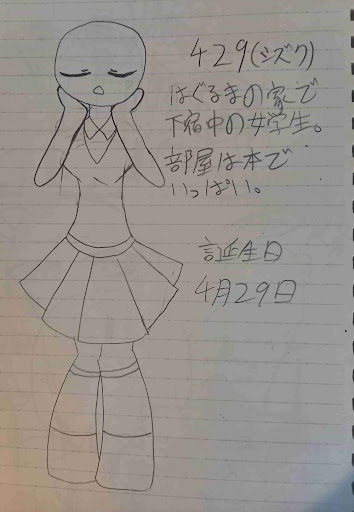 429(シズク)
はぐるまの家で
下宿中の女学生。
部屋は本で
いっぱい。
誕生日
4月29日